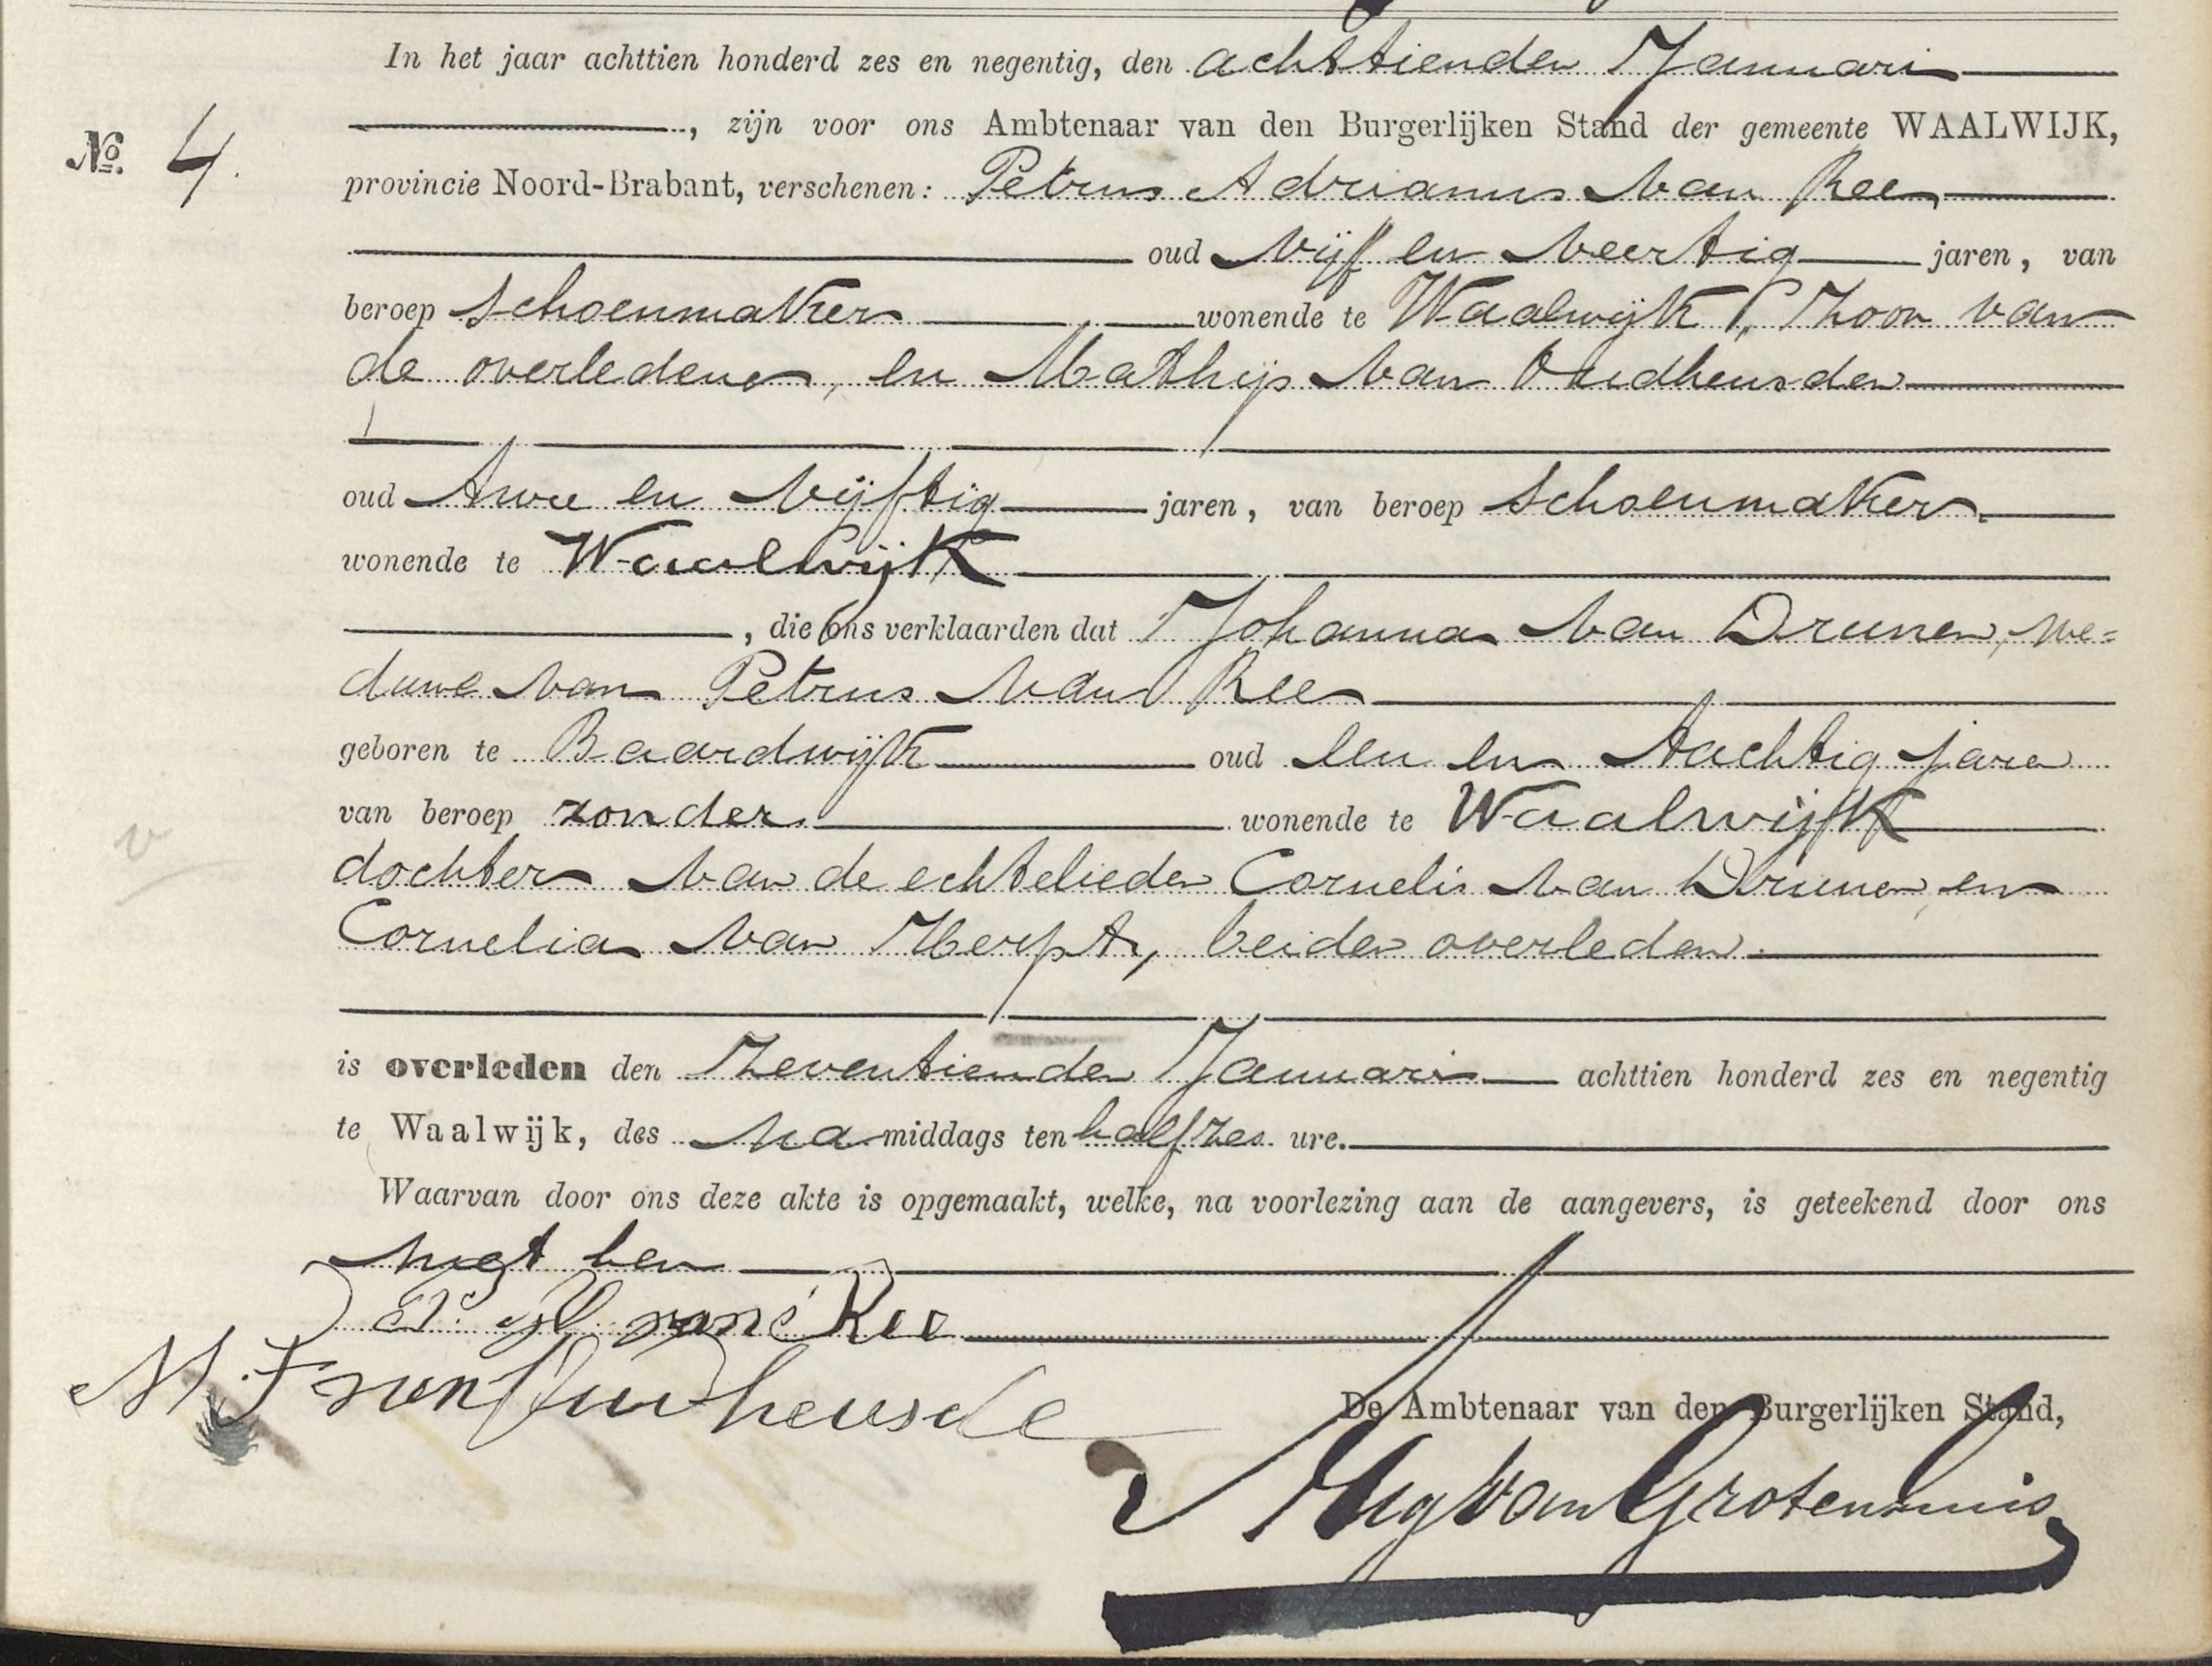 In het jaar achttien honderd zes en negentig, den achttienden Januari
No. 4.
, zijn voor ons Ambtenaar van den Burgerlijken Stand der gemeente WAALWIJK,
provincie Noord-Brabant, verschenen: Petrus Adrianus van Ree,
oud vijf en veertig jaren, van
beroep schoenmaker wonende te Waalwijk, Zoon van
de overledene, en Mathijs van Oudheusden
oud twee en vijftig jaren, van beroep schoenmaker
wonende te Waalwijk
, die ons verklaarden dat Johanna van Drunen, we=
duwe van Petrus van Ree
geboren te Baardwijk oud een en tachtig jaren
van beroep zonder wonende te Waalwijk
dochter van de echtelieden Cornelis van Drunen en
Cornelia van Herpt, beiden overleden.
is overleden den Zeventienden Januari achttien honderd zes en negentig
te Waalwijk, des na middags ten half zes ure.
Waarvan door ons deze akte is opgemaakt, welke, na voorlezing aan de aangevers, is geteekend door ons
met hen
P. A. van Ree
M. F van Oudheusde
De Ambtenaar van den Burgerlijken Stand,
van Grotenhuis